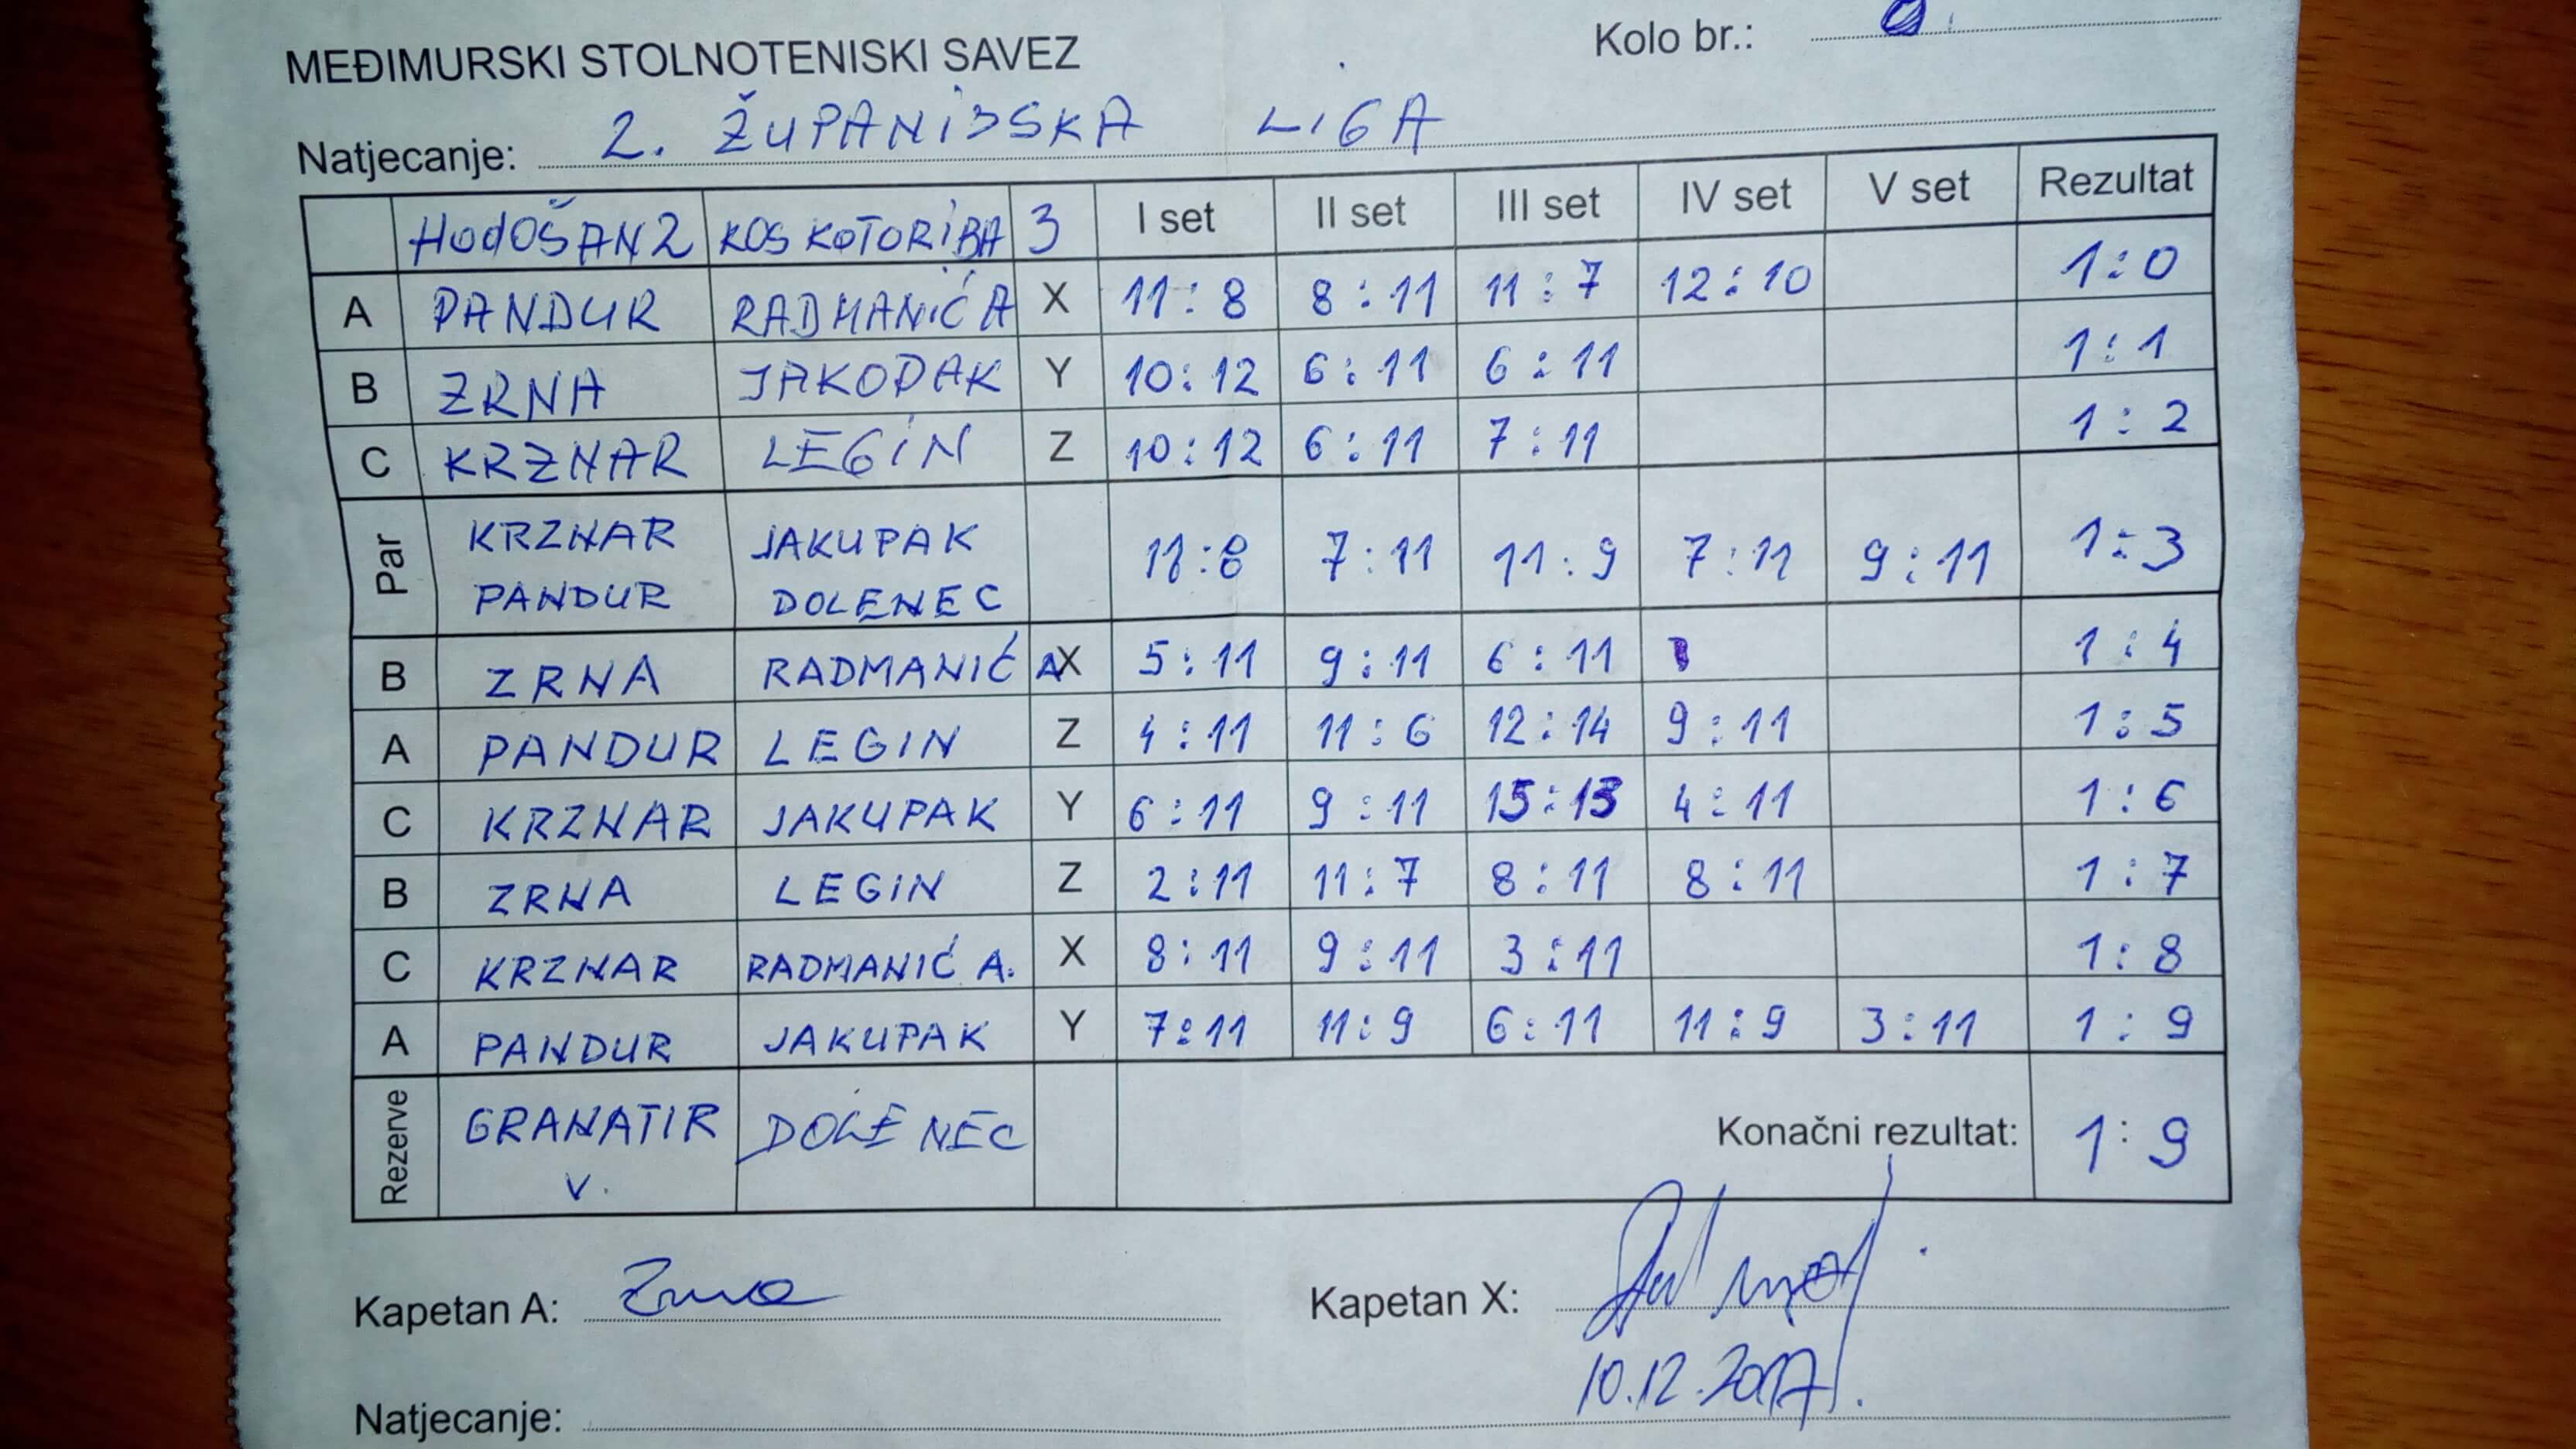 Kolo br.:
MEĐIMURSKI STOLNOTENISKI SAVEZ
Natjecanje: 2. ŽUPANIJSKA LIGA
HODOŠAN 2 KOS KOTORIBA 3 I set II set III set IV set V set Rezultat
A PANDUR RADMANIĆ A X 11:8 8:11 11:7 12:10 1:0
B ZRNA JAKOPAK Y 10:12 6:11 6:11 1:1
C KRZNAR LEGIN Z 10:12 6:11 7:11 1:2
Par KRZNAR JAKUPAK 11:8 7:11 11:9 7:11 9:11 1:3
PANDUR DOLENEC
B ZRNA RADMANIĆ A X 5:11 9:11 6:11 1:4
A PANDUR LEGIN Z 4:11 11:6 12:14 9:11 1:5
C KRZNAR JAKUPAK Y 6:11 9:11 15:13 4:11 1:6
B ZRNA LEGIN Z 2:11 11:7 8:11 8:11 1:7
C KRZNAR RADMANIĆ A. X 8:11 9:11 3:11 1:8
A PANDUR JAKUPAK Y 7:11 11:9 6:11 11:9 3:11 1:9
Rezerve GRANATIR DOLENEC Konačni rezultat: 1:9
V.
Kapetan A: Zrna Kapetan X:
10.12.2017.
Natjecanje: